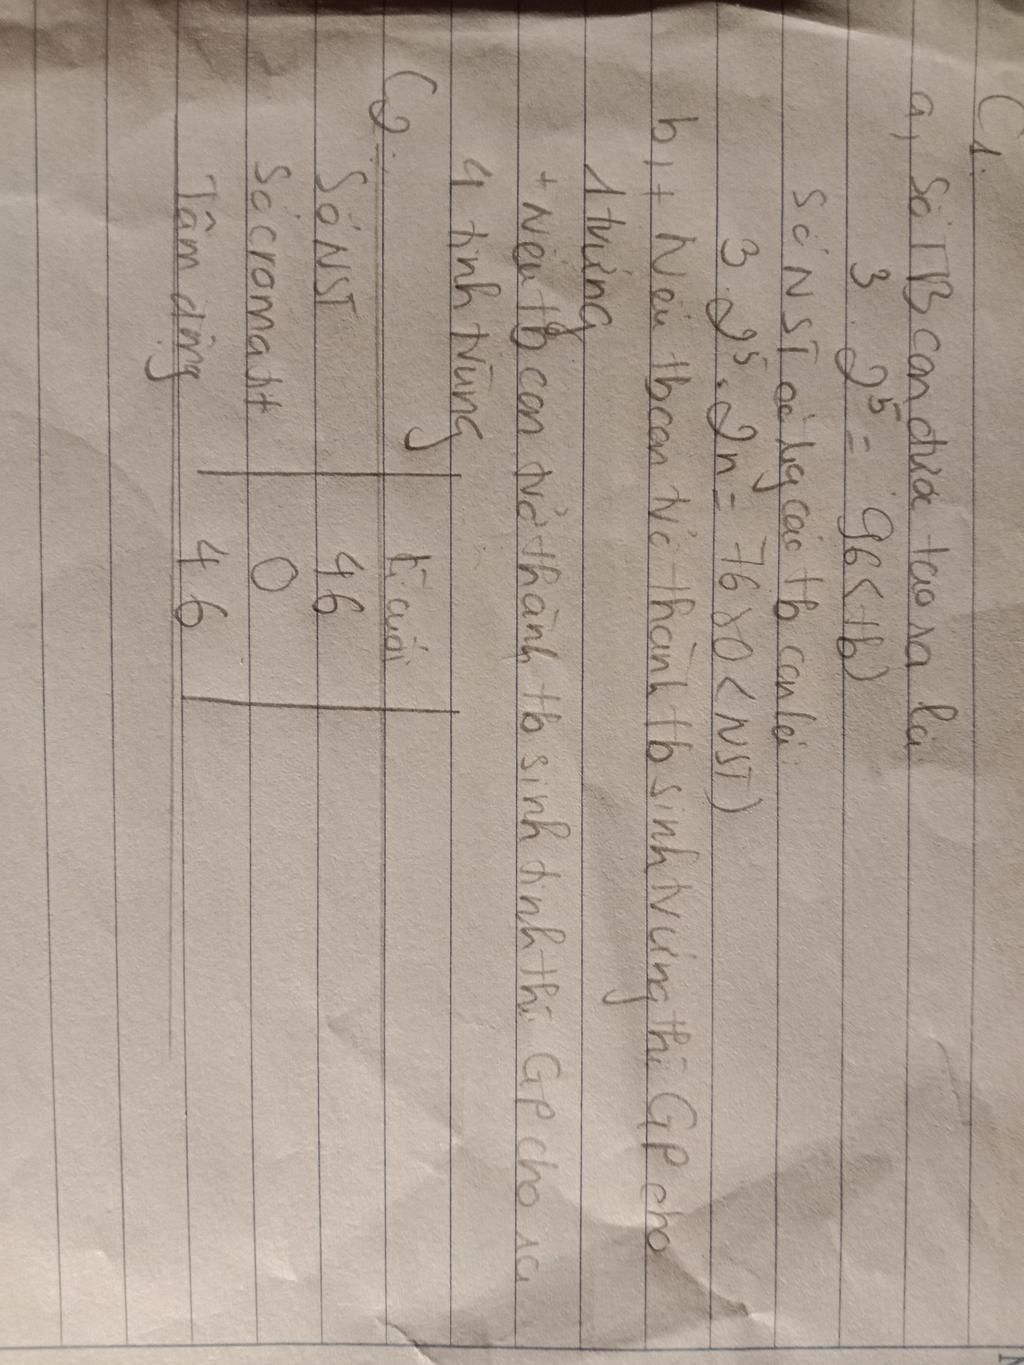 C1.
a, Số TB con được tạo ra là
3 . 2⁵ = 96 < tb)
Số NST có trong các tb con là
3 . 2⁵ . 2n = 7680 < NST)
b, + Nếu tb con trở thành tb sinh trứng thì GP cho
1 trứng
+ Nếu tb con trở thành tb sinh tinh thì GP cho ra
4 tinh trùng
C2.
kì cuối
Số NST 46
Số cromatit 0
Tâm động 46